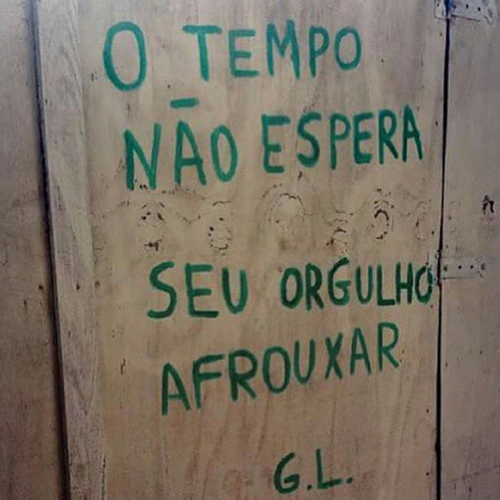 O TEMPO
NÃO ESPERA
SEU ORGULHO
AFROUXAR
G.L.